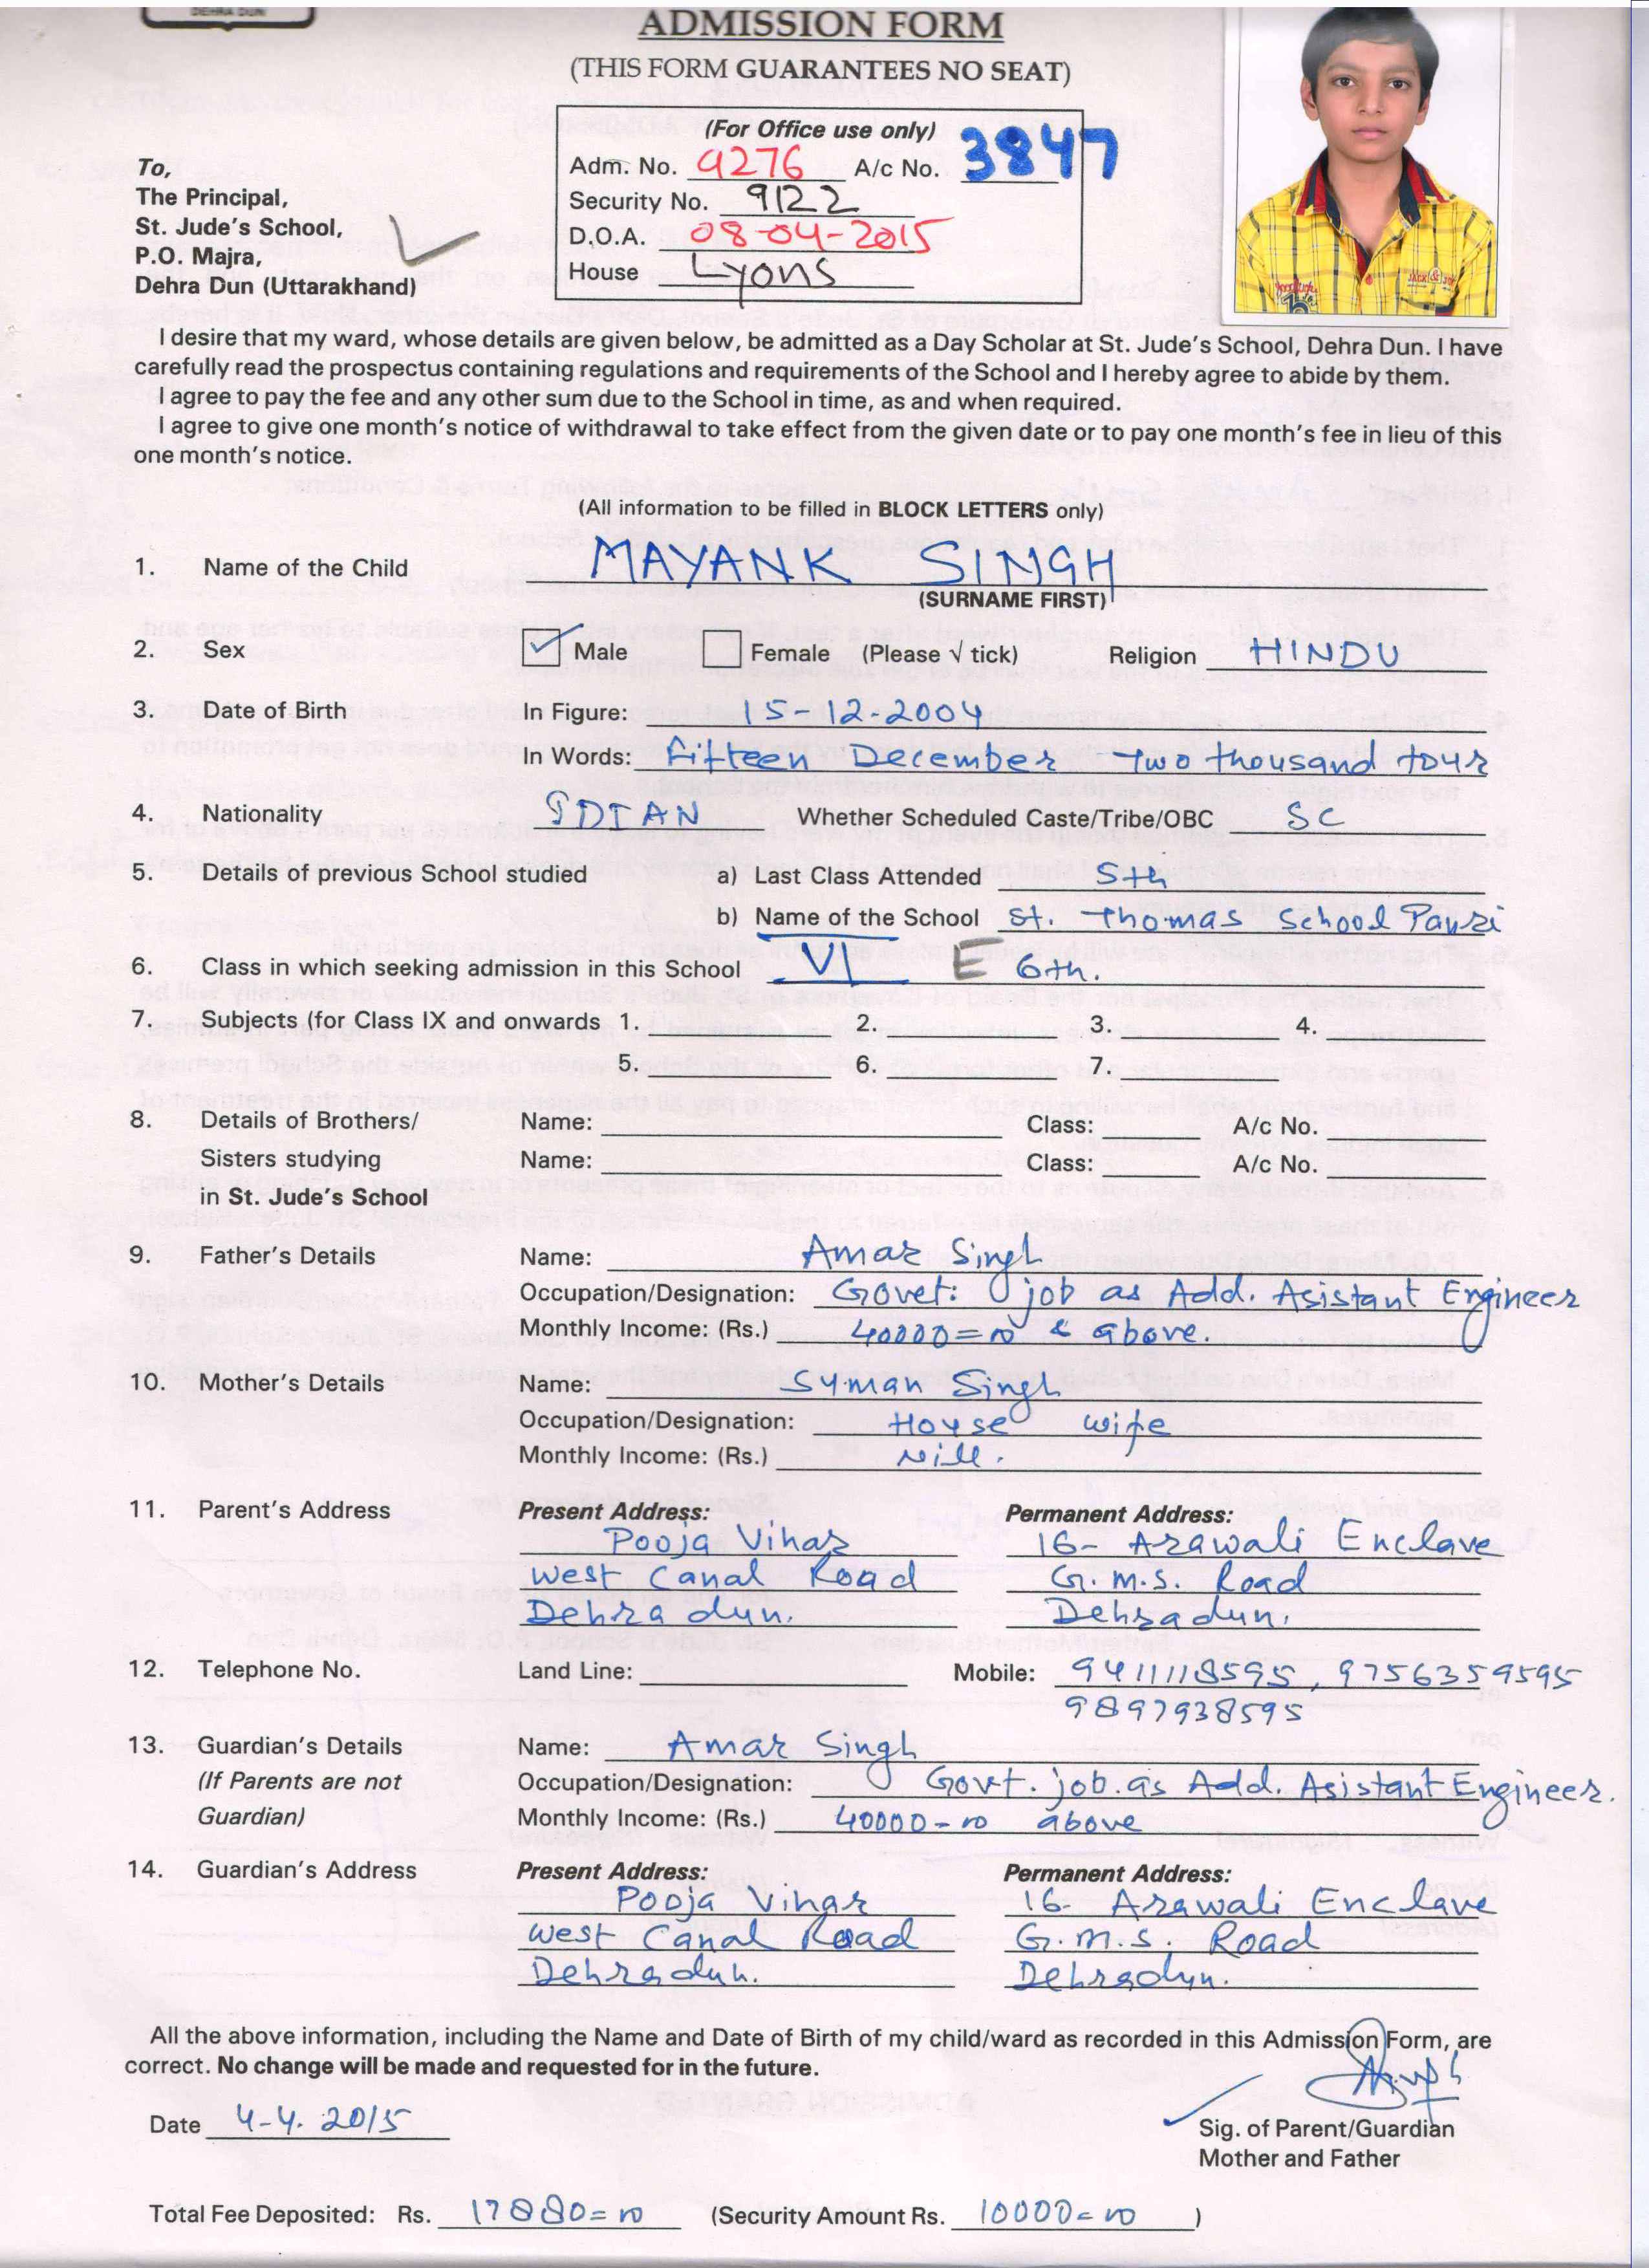 DEHRA DUN
ADMISSION FORM
(THIS FORM GUARANTEES NO SEAT)
(For Office use only)
Adm. No. 9276 A/c No. 3847
Security No. 9122
D.O.A. 08-04-2015
House Lyons
To,
The Principal,
St. Jude's School,
P.O. Majra,
Dehra Dun (Uttarakhand)
I desire that my ward, whose details are given below, be admitted as a Day Scholar at St. Jude's School, Dehra Dun. I have
carefully read the prospectus containing regulations and requirements of the School and I hereby agree to abide by them.
I agree to pay the fee and any other sum due to the School in time, as and when required.
I agree to give one month's notice of withdrawal to take effect from the given date or to pay one month's fee in lieu of this
one month's notice.
(All information to be filled in BLOCK LETTERS only)
1. Name of the Child MAYANK SINGH
(SURNAME FIRST)
2. Sex Male Female (Please √ tick) Religion HINDU
3. Date of Birth In Figure: 15-12-2004
In Words: Fifteen December two thousand four
4. Nationality IDIAN Whether Scheduled Caste/Tribe/OBC SC
5. Details of previous School studied a) Last Class Attended 5th
b) Name of the School St. Thomas School Pauri
6. Class in which seeking admission in this School VI E 6th.
7. Subjects (for Class IX and onwards 1. 2. 3. 4.
5. 6. 7.
8. Details of Brothers/ Name: Class: A/c No.
Sisters studying Name: Class: A/c No.
in St. Jude's School
9. Father's Details Name: Amar Singh
Occupation/Designation: Govet: job as Add. Asistant Engineer
Monthly Income: (Rs.) 40000=00 & above.
10. Mother's Details Name: Suman Singh
Occupation/Designation: House wife
Monthly Income: (Rs.) Nill.
11. Parent's Address Present Address: Permanent Address:
Pooja Vihar 16- Arawali Enclave
West Canal Road G.M.S. Road
Dehra dun. Dehradun.
12. Telephone No. Land Line: Mobile: 9411118595, 9756359595
9897938595
13. Guardian's Details Name: Amar Singh
(If Parents are not Occupation/Designation: Govt. job as Add. Asistant Engineer.
Guardian) Monthly Income: (Rs.) 40000-00 above
14. Guardian's Address Present Address: Permanent Address:
Pooja Vihar 16- Arawali Enclave
West Canal Road G.M.S. Road
Dehradun. Dehradun.
All the above information, including the Name and Date of Birth of my child/ward as recorded in this Admission Form, are
correct. No change will be made and requested for in the future.
Date 4-4. 2015
Sig. of Parent/Guardian
Mother and Father
Total Fee Deposited: Rs. 17880=00 (Security Amount Rs. 10000=00 )